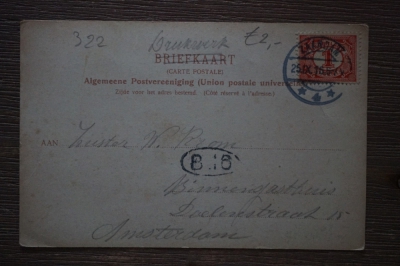 322 Drukwerk €2,-
BRIEFKAART
(CARTE POSTALE)
Algemeene Postvereeniging (Union postale universelle)
Zijde voor het adres bestemd. (Côté réservé à l'adresse)
AAN Zuster
B 16
Binnengasthuis
Doelenstraat 15
Amsterdam